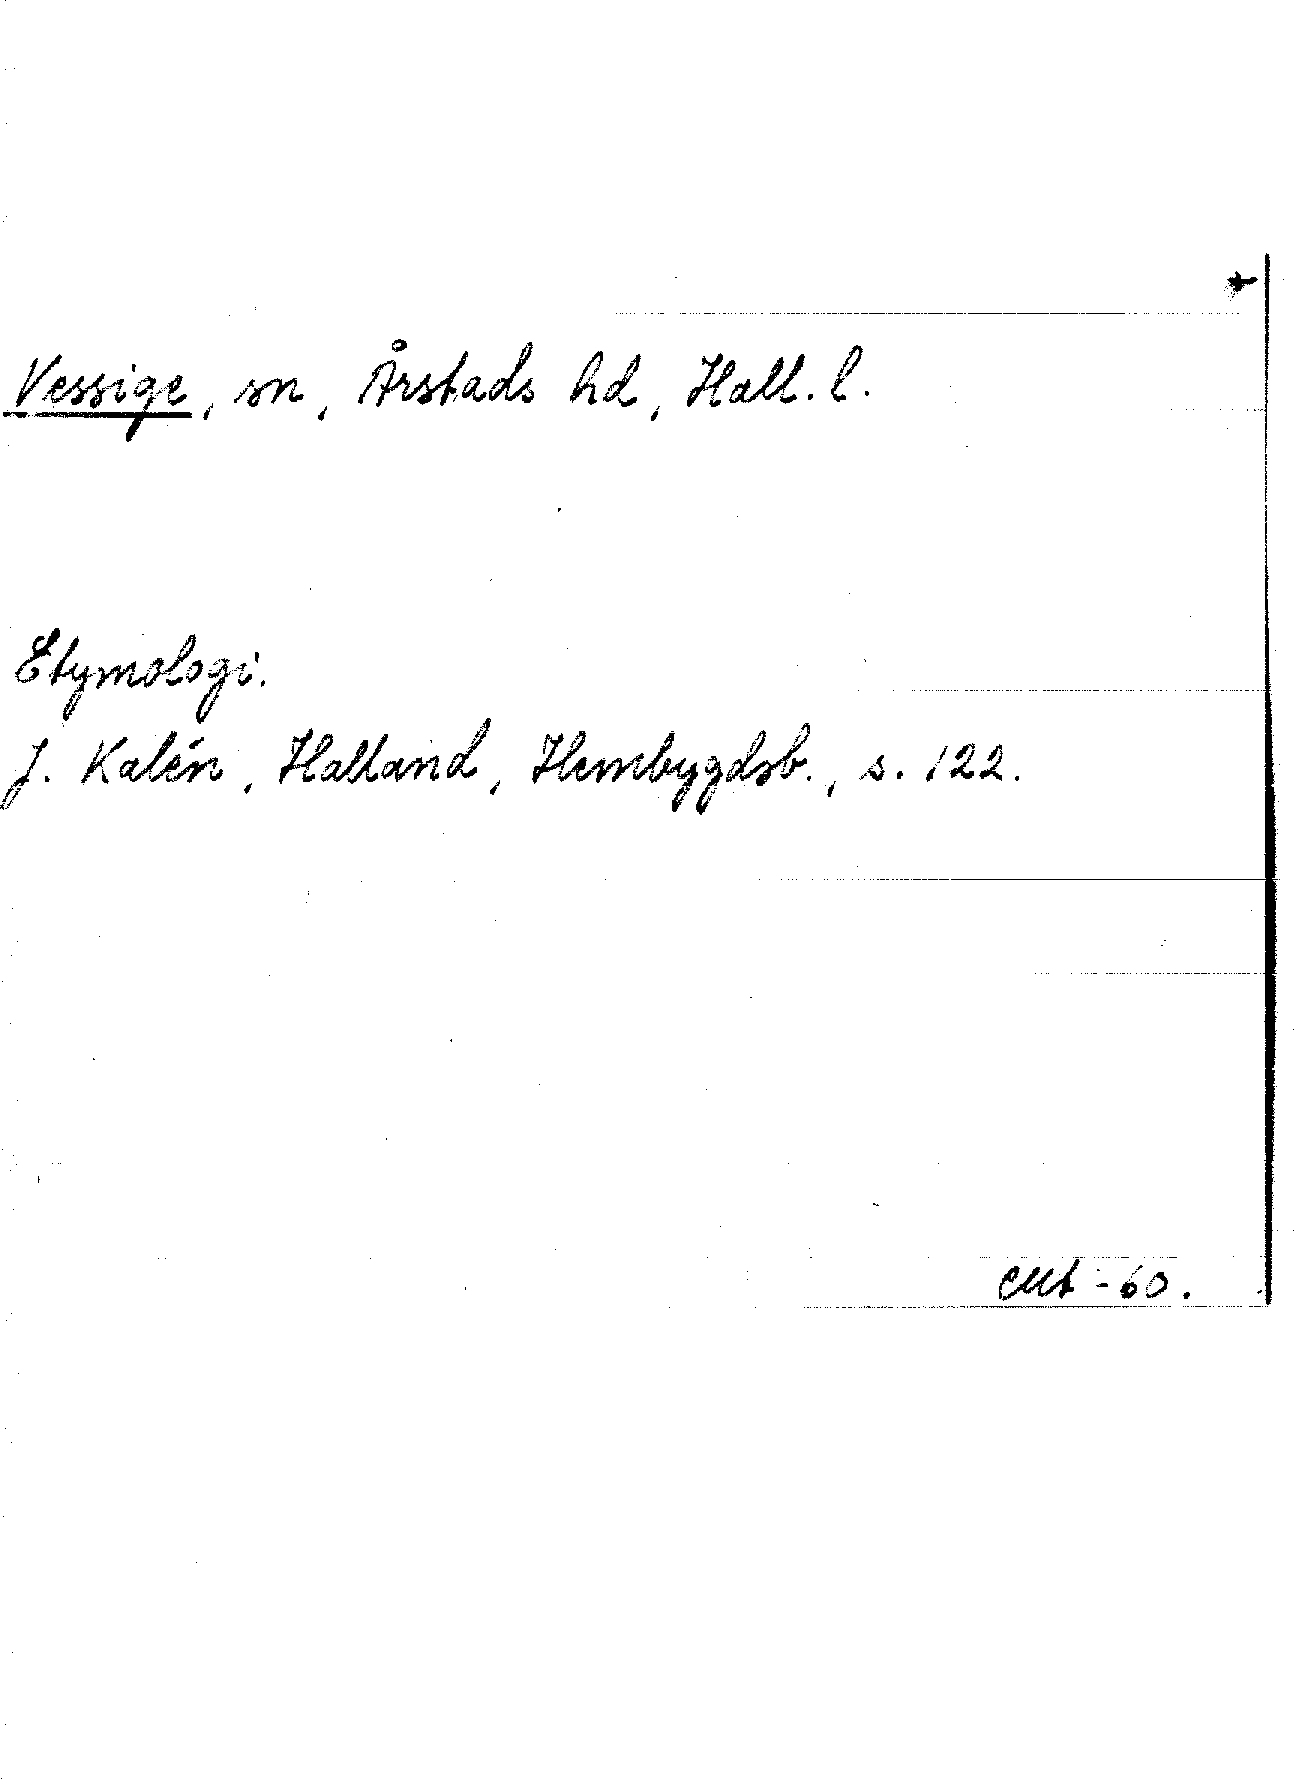 Vessige, sn, Årstads hd, Hall. l.
Etymologi.
J. Kalén, Halland, Hembygdsb., s. 122.
-60.